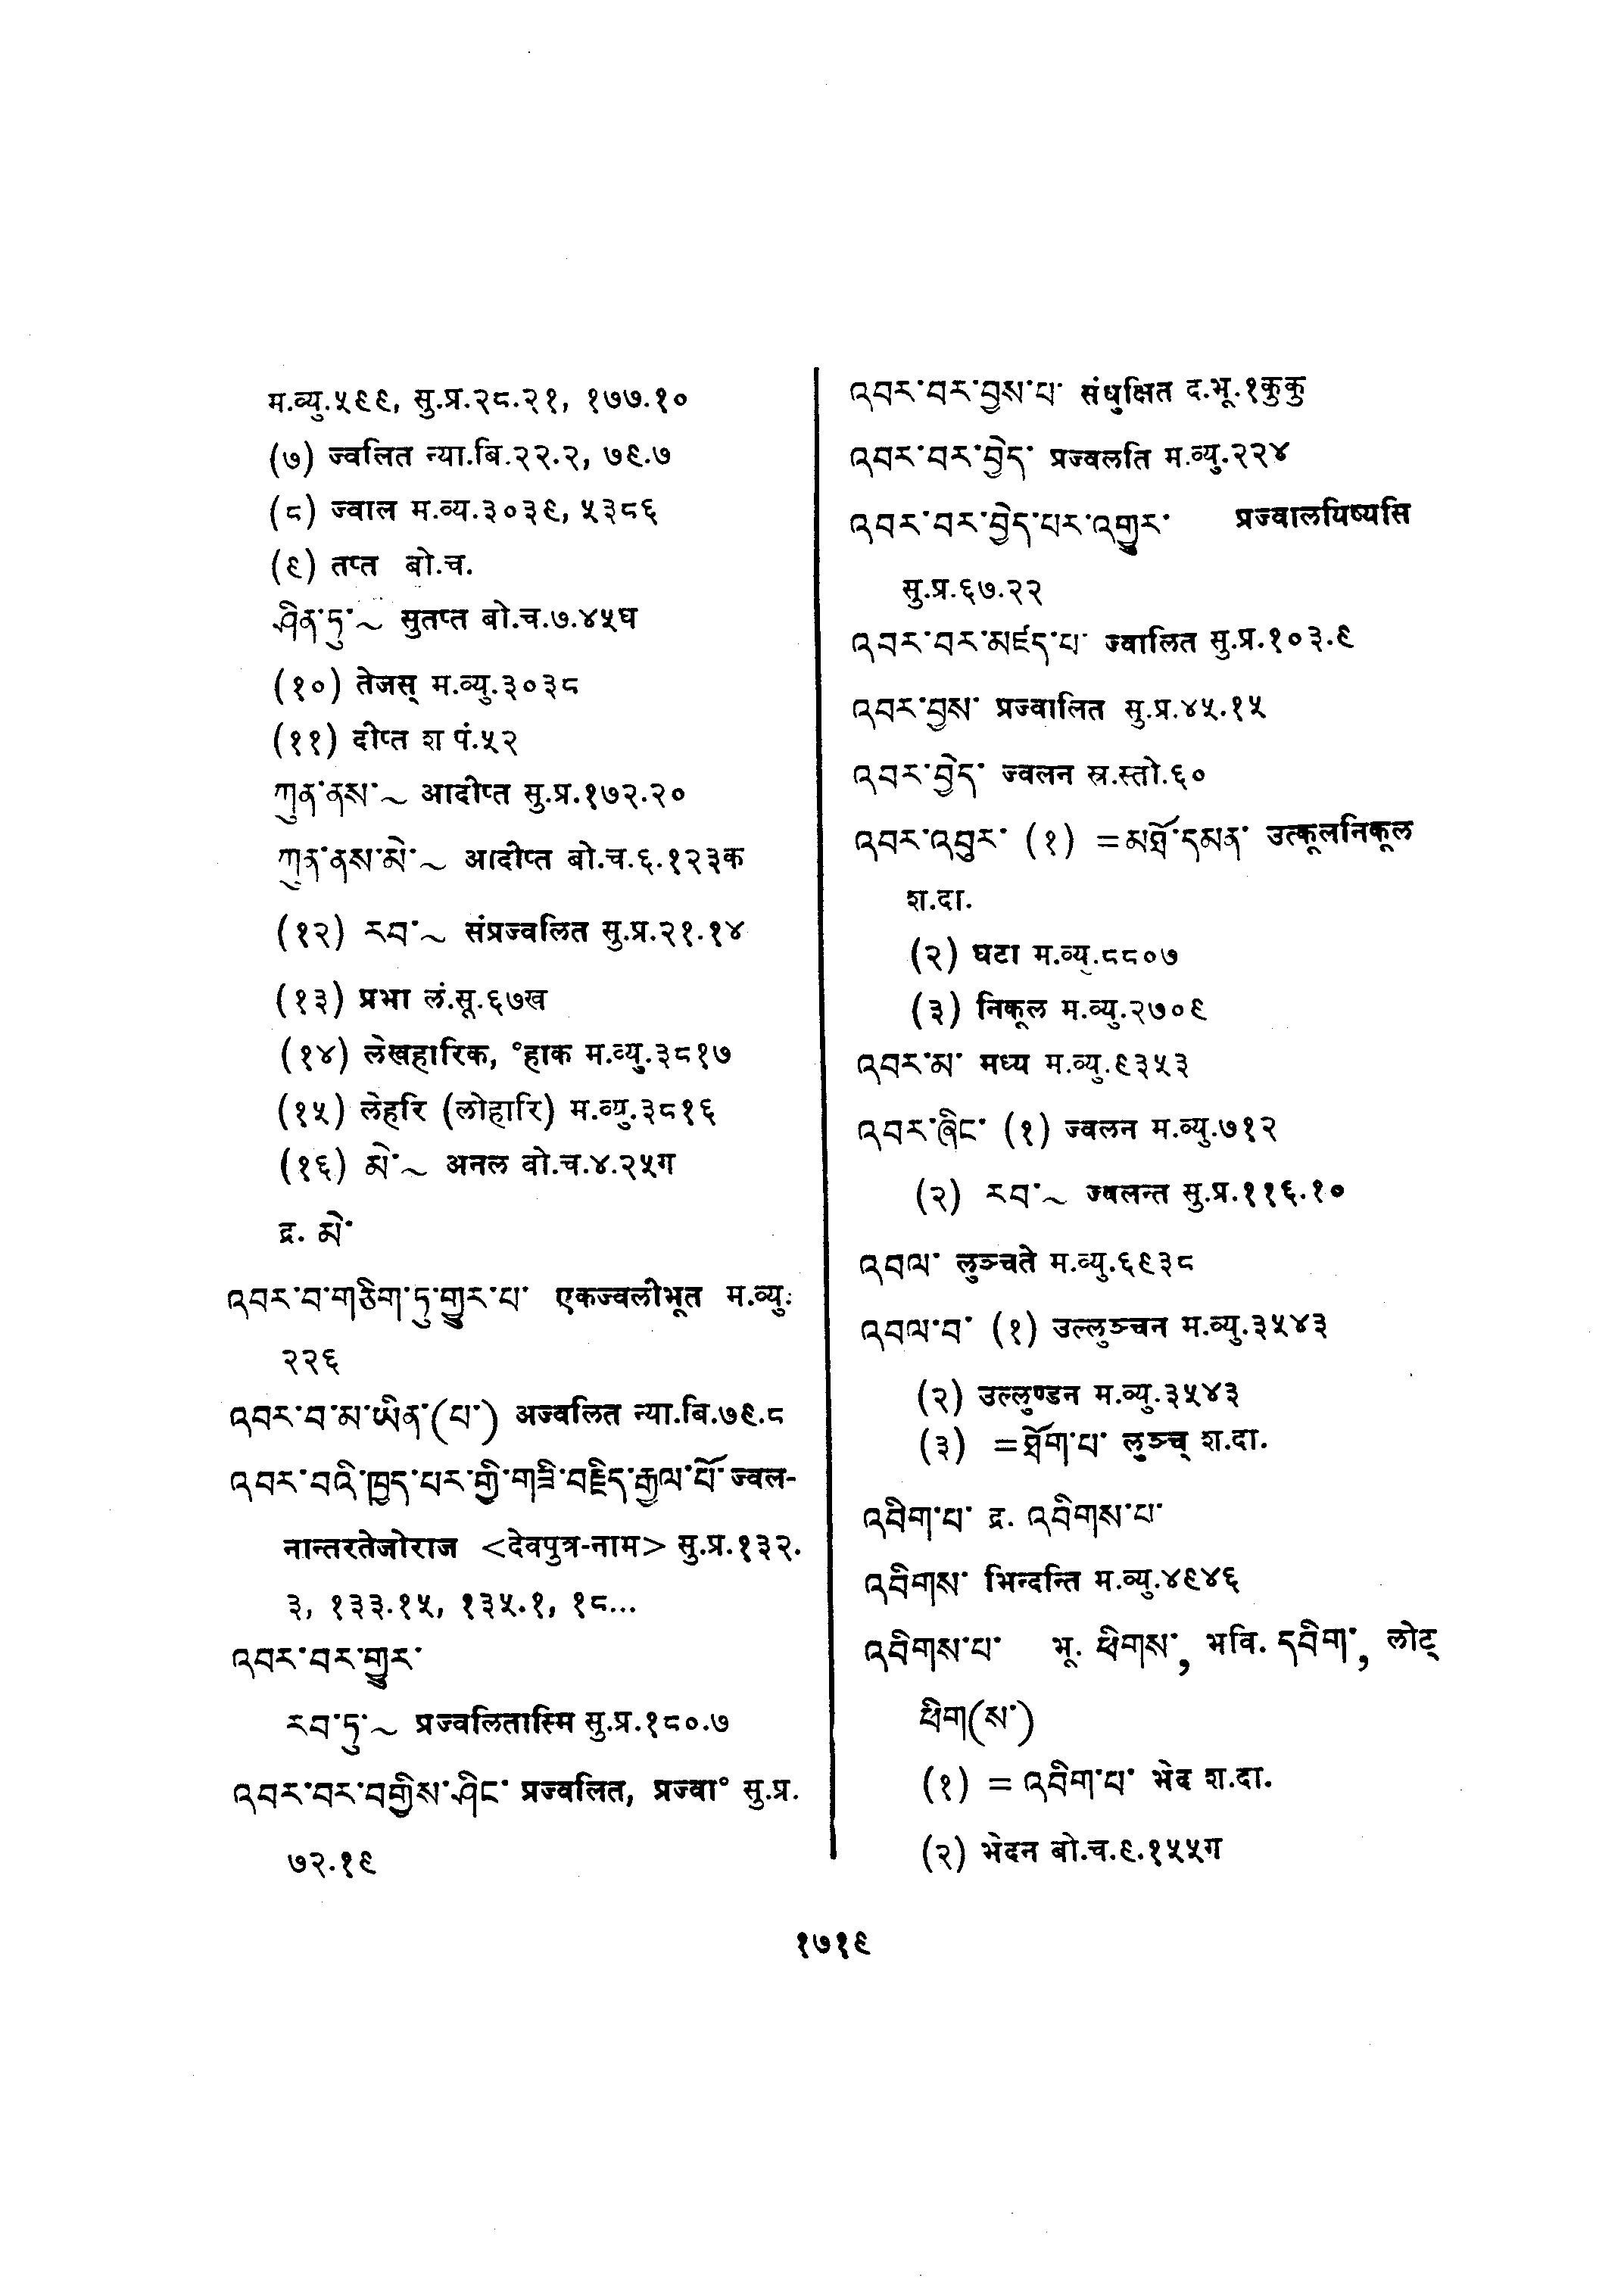 म.व्यु.५९९, सु.प्र.२८.२१, १७७.१०
(७) ज्वलित न्या.बि.२२.२, ७९.७
(८) ज्वाल म.व्य.३०३९, ५३८६
(९) तप्त बो.च.
ཤིན་ཏུ་~ सुतप्त बो.च.७.४५घ
(१०) तेजस् म.व्यु.३०३८
(११) दीप्त श पं.५२
ཀུན་ནས་~ आदीप्त सु.प्र.१७२.२०
ཀུན་ནས་མེ་~ आदीप्त बो.च.६.१२३क
(१२) རབ་~ संप्रज्वलित सु.प्र.२१.१४
(१३) प्रभा लं.सू.६७ख
(१४) लेखहारिक, °हाक म.व्यु.३८१७
(१५) लेहरि (लोहारि) म.व्यु.३८१६
(१६) མེ་~ अनल वो.च.४.२५ग
द्र. མེ་
འབར་བ་གཅིག་ཏུ་གྱུར་པ་ एकज्वलीभूत म.व्यु.
२२६
འབར་བ་མ་ཡིན་(པ་) अज्वलित न्या.बि.७९.८
འབར་བའི་ཁྱད་པར་གྱི་གཟི་བརྗིད་རྒྱལ་པོ་ ज्वल-
नान्तरतेजोराज <देवपुत्र-नाम> सु.प्र.१३२.
३, १३३.१५, १३५.१, १८...
འབར་བར་གྱུར་
རབ་ཏུ་~ प्रज्वलितास्मि सु.प्र.१८०.७
འབར་བར་བགྱིས་ཤིང་ प्रज्वलित, प्रज्वा° सु.प्र.
७२.१९
འབར་བར་བྱས་པ་ संधुक्षित द.भू.१कुकु
འབར་བར་བྱེད་ प्रज्वलति म.व्यु.२२४
འབར་བར་བྱེད་པར་འགྱུར་ प्रज्वालयिष्यसि
सु.प्र.६७.२२
འབར་བར་མཛད་པ་ ज्वालित सु.प्र.१०३.९
འབར་བྱས་ प्रज्वालित सु.प्र.४५.१५
འབར་བྱེད་ ज्वलन स्र.स्तो.६०
འབར་འབུར་ (१) =མཐོ་དམན་ उत्कूलनिकूल
श.दा.
(२) घटा म.व्यु.८८०७
(३) निकूल म.व्यु.२७०९
འབར་མ་ मध्य म.व्यु.९३५३
འབར་ཞིང་ (१) ज्वलन म.व्यु.७१२
(२) རབ་~ ज्वलन्त सु.प्र.११६.१०
འབལ་ लुञ्चते म.व्यु.६९३८
འབལ་བ་ (१) उल्लुञ्चन म.व्यु.३५४३
(२) उल्लुण्डन म.व्यु.३५४३
(३) =ཐོག་པ་ लुञ्च् श.दा.
འབིག་པ་ द्र. འབིགས་པ་
འབིགས་ भिन्दन्ति म.व्यु.४९४६
འབིགས་པ་ भू. ཕིགས་, भवि. དབིག་, लोट्
ཕིག(ས་)
(१) = འབིག་པ་ भेद श.दा.
(२) भेदन बो.च.९.१५५ग
१७१९